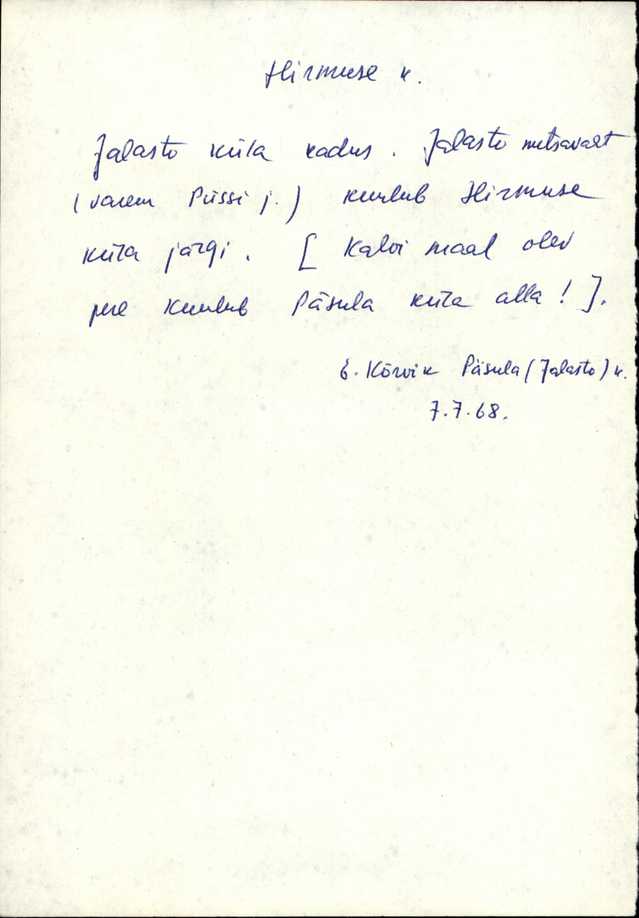 Hirmuse k.
Jalasto küla kadus. Jalasto metsavaht
(varem Püssi j.) kuulub Hirmuse
küla järgi. [Kalvi maal olev
pere kuulub Päsula küla alla!].
E. Kõrvik Päsula (Jalasto) k.
7.7.68.